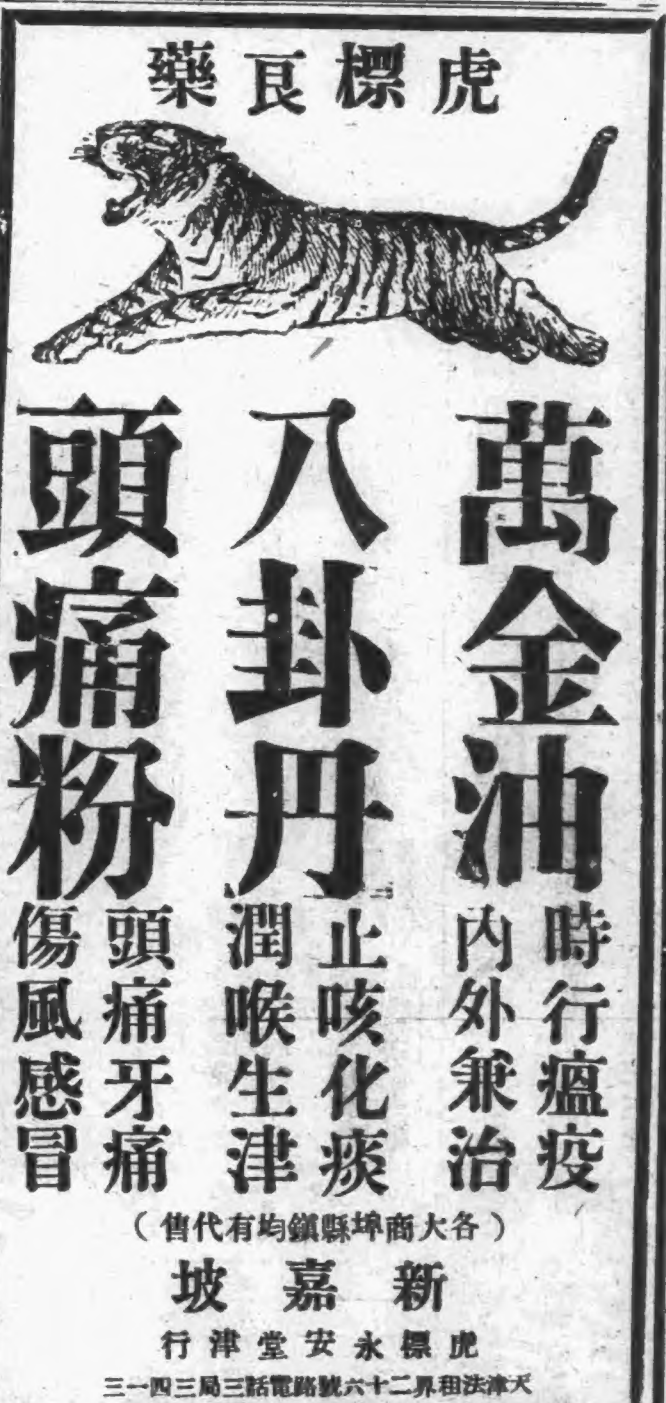 虎標良藥
萬金油
時行瘟疫
內外兼治
八卦丹
止咳化痰
潤喉生津
頭痛粉
頭痛牙痛
傷風感冒
（各大商埠縣鎮均有代售）
新嘉坡
虎標永安堂津行
天津法租界二十六號路電話三局三四一三